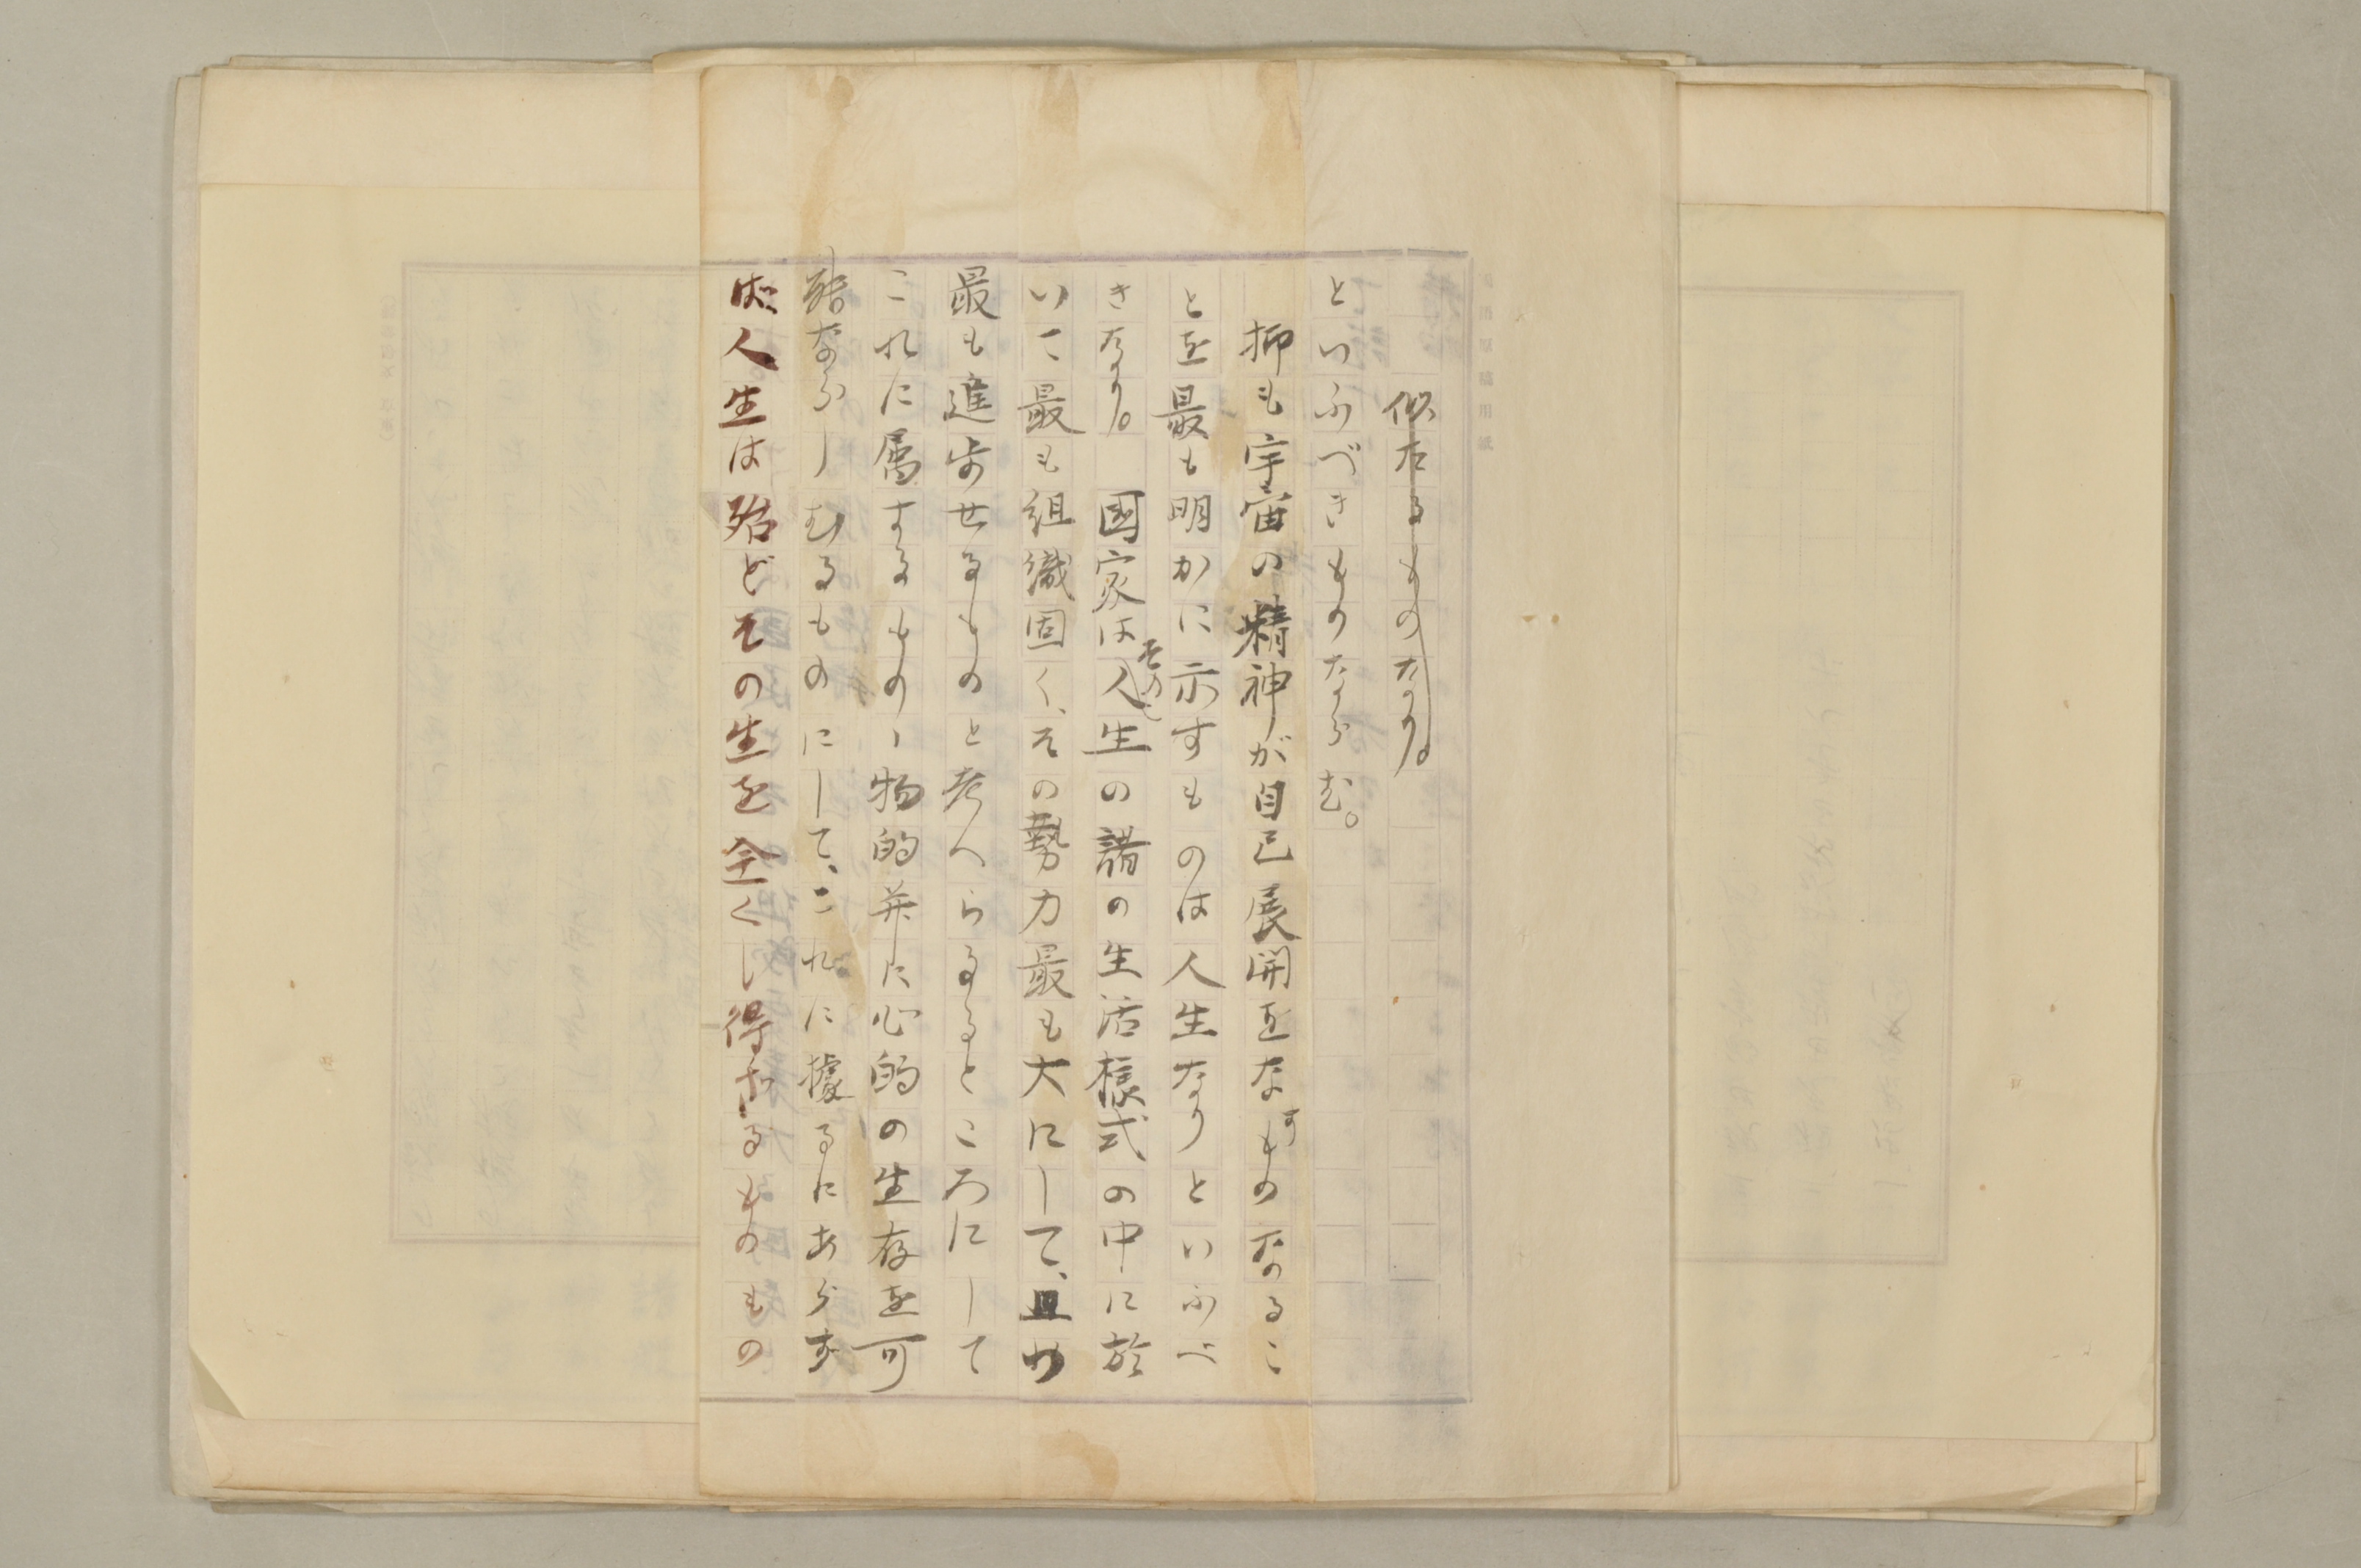 似たるものなり。
といふべきものならむ。
抑も宇宙の精神が自己展開をなすものなるこ
とを最も明かに示すものは人生なりといふべ
きなり。國家は人生の諸の生活樣式の中に於
いて最も組織固く、その勢力最も大にして、且つ
最も進歩せるものと考へらるるところにして
これに属するもの丶物的并に心的の生存を可
能ならしむるものにして、これに據るにあらず
ば人生は殆どその生を全くし得ざるものもの